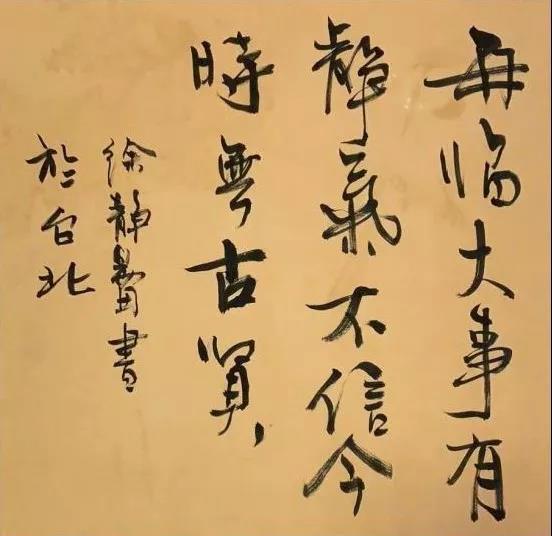 每臨大事有
靜氣不信今
時無古賢
徐靜蕾書
於台北